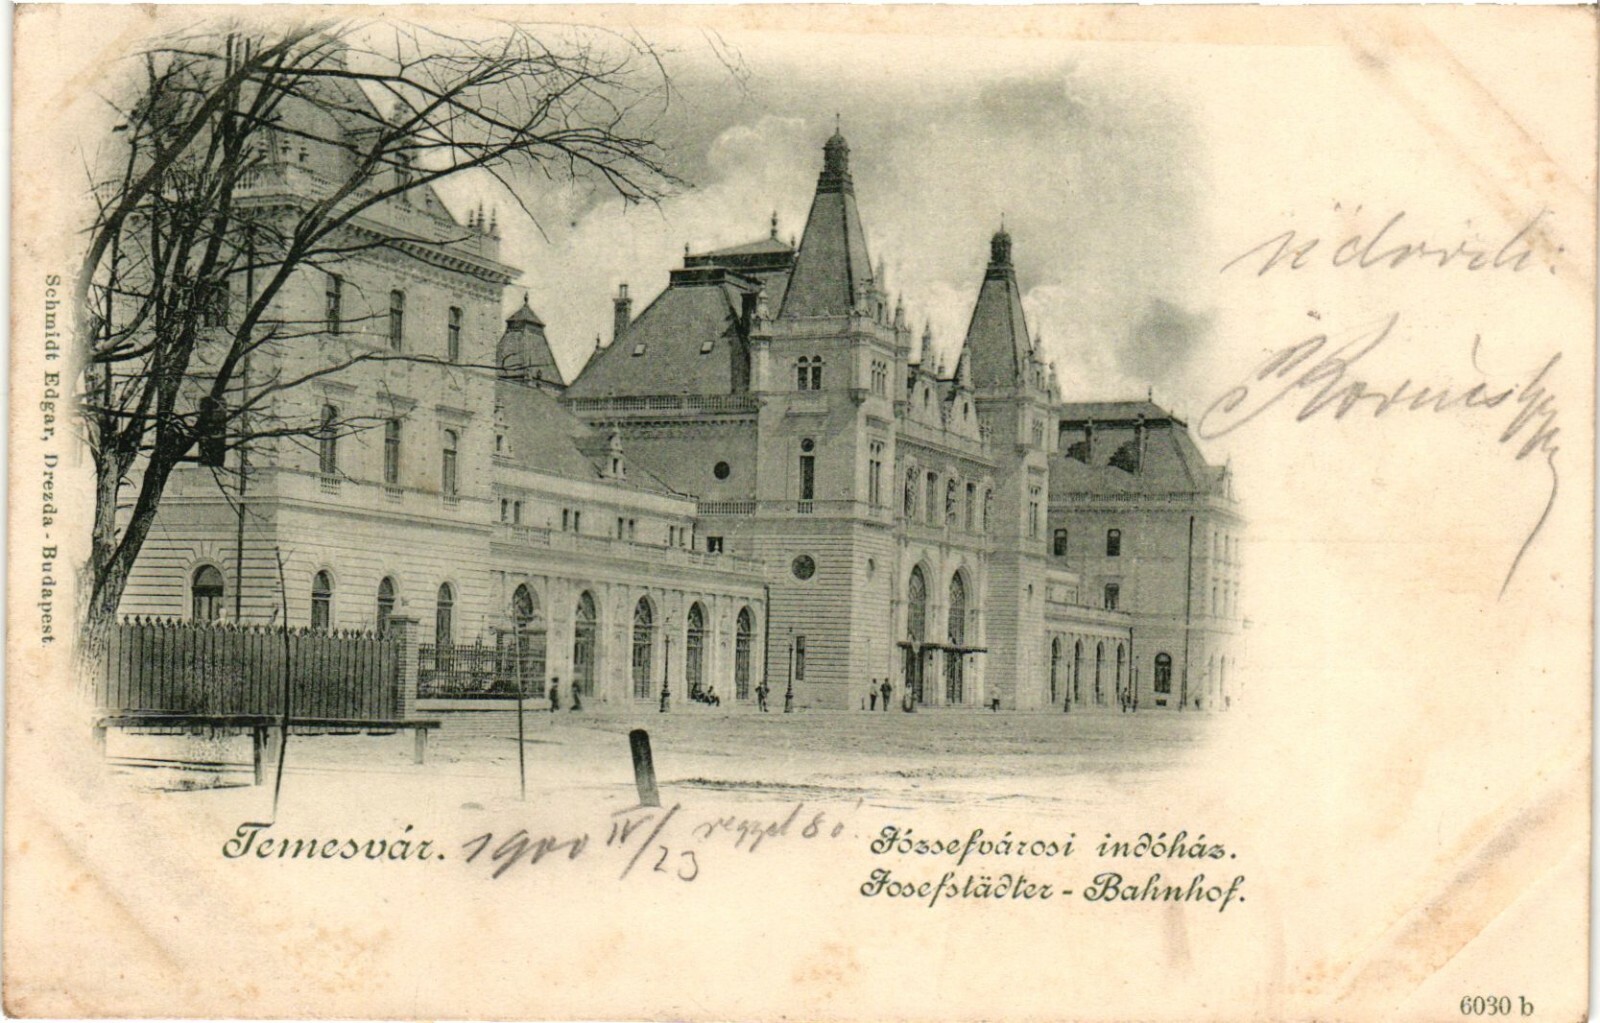 üdvözli:
Schmidt Edgar, Drezda - Budapest.
Temesvár. 1900 IV/23 reggel 8 ó.
Józsefvárosi indóház.
Josefstädter - Bahnhof.
6030 b